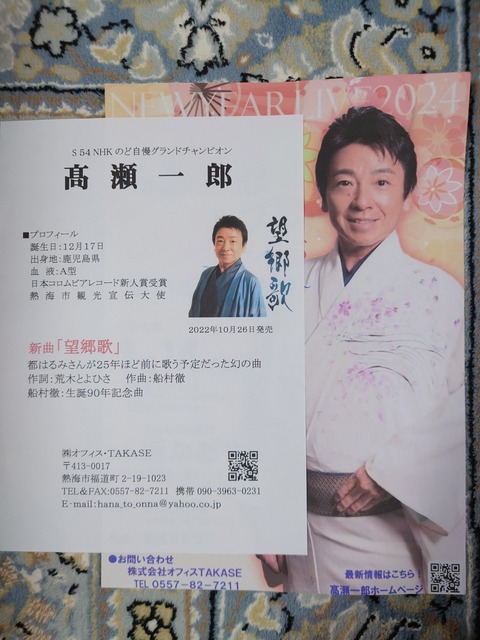 NEW YEAR LIVE2024
S54 NHKのど自慢グランドチャンピオン
髙瀬一郎
■プロフィール
誕生日:12月17日
出身地:鹿児島県
血液:A型
日本コロムビアレコード新人賞受賞
熱海市観光宣伝大使
望郷歌
2022年10月26日発売
新曲「望郷歌」
都はるみさんが25年ほど前に歌う予定だった幻の曲
作詞:荒木とよひさ 作曲:船村徹
船村徹:生誕90年記念曲
㈱オフィス・TAKASE
〒413-0017
熱海市福道町2-19-1023
TEL&FAX:0557-82-7211 携帯 090-3963-0231
E-mail:hana_to_onna@yahoo.co.jp
●お問い合わせ
株式会社オフィスTAKASE
TEL 0557-82-7211
最新情報はこちら!
高瀬一郎ホームページ